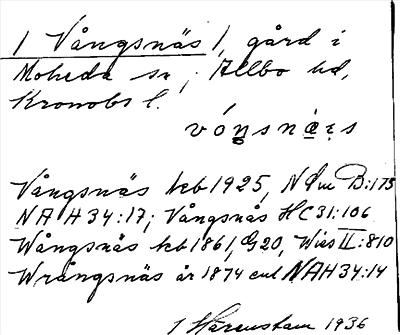 / Vångsnäs /, gård i
Moheda sn, Allbo hd,
Kronobs l.
vóŋsnæs
Vångsnäs kb 1925, NDm B:175
NAH 34:17; Vångsnås HC 31:106
Wångsnäs kb 1861, G20, Wies II:810
Wrångsnäs år 1874 enl NAH 34:14
1936